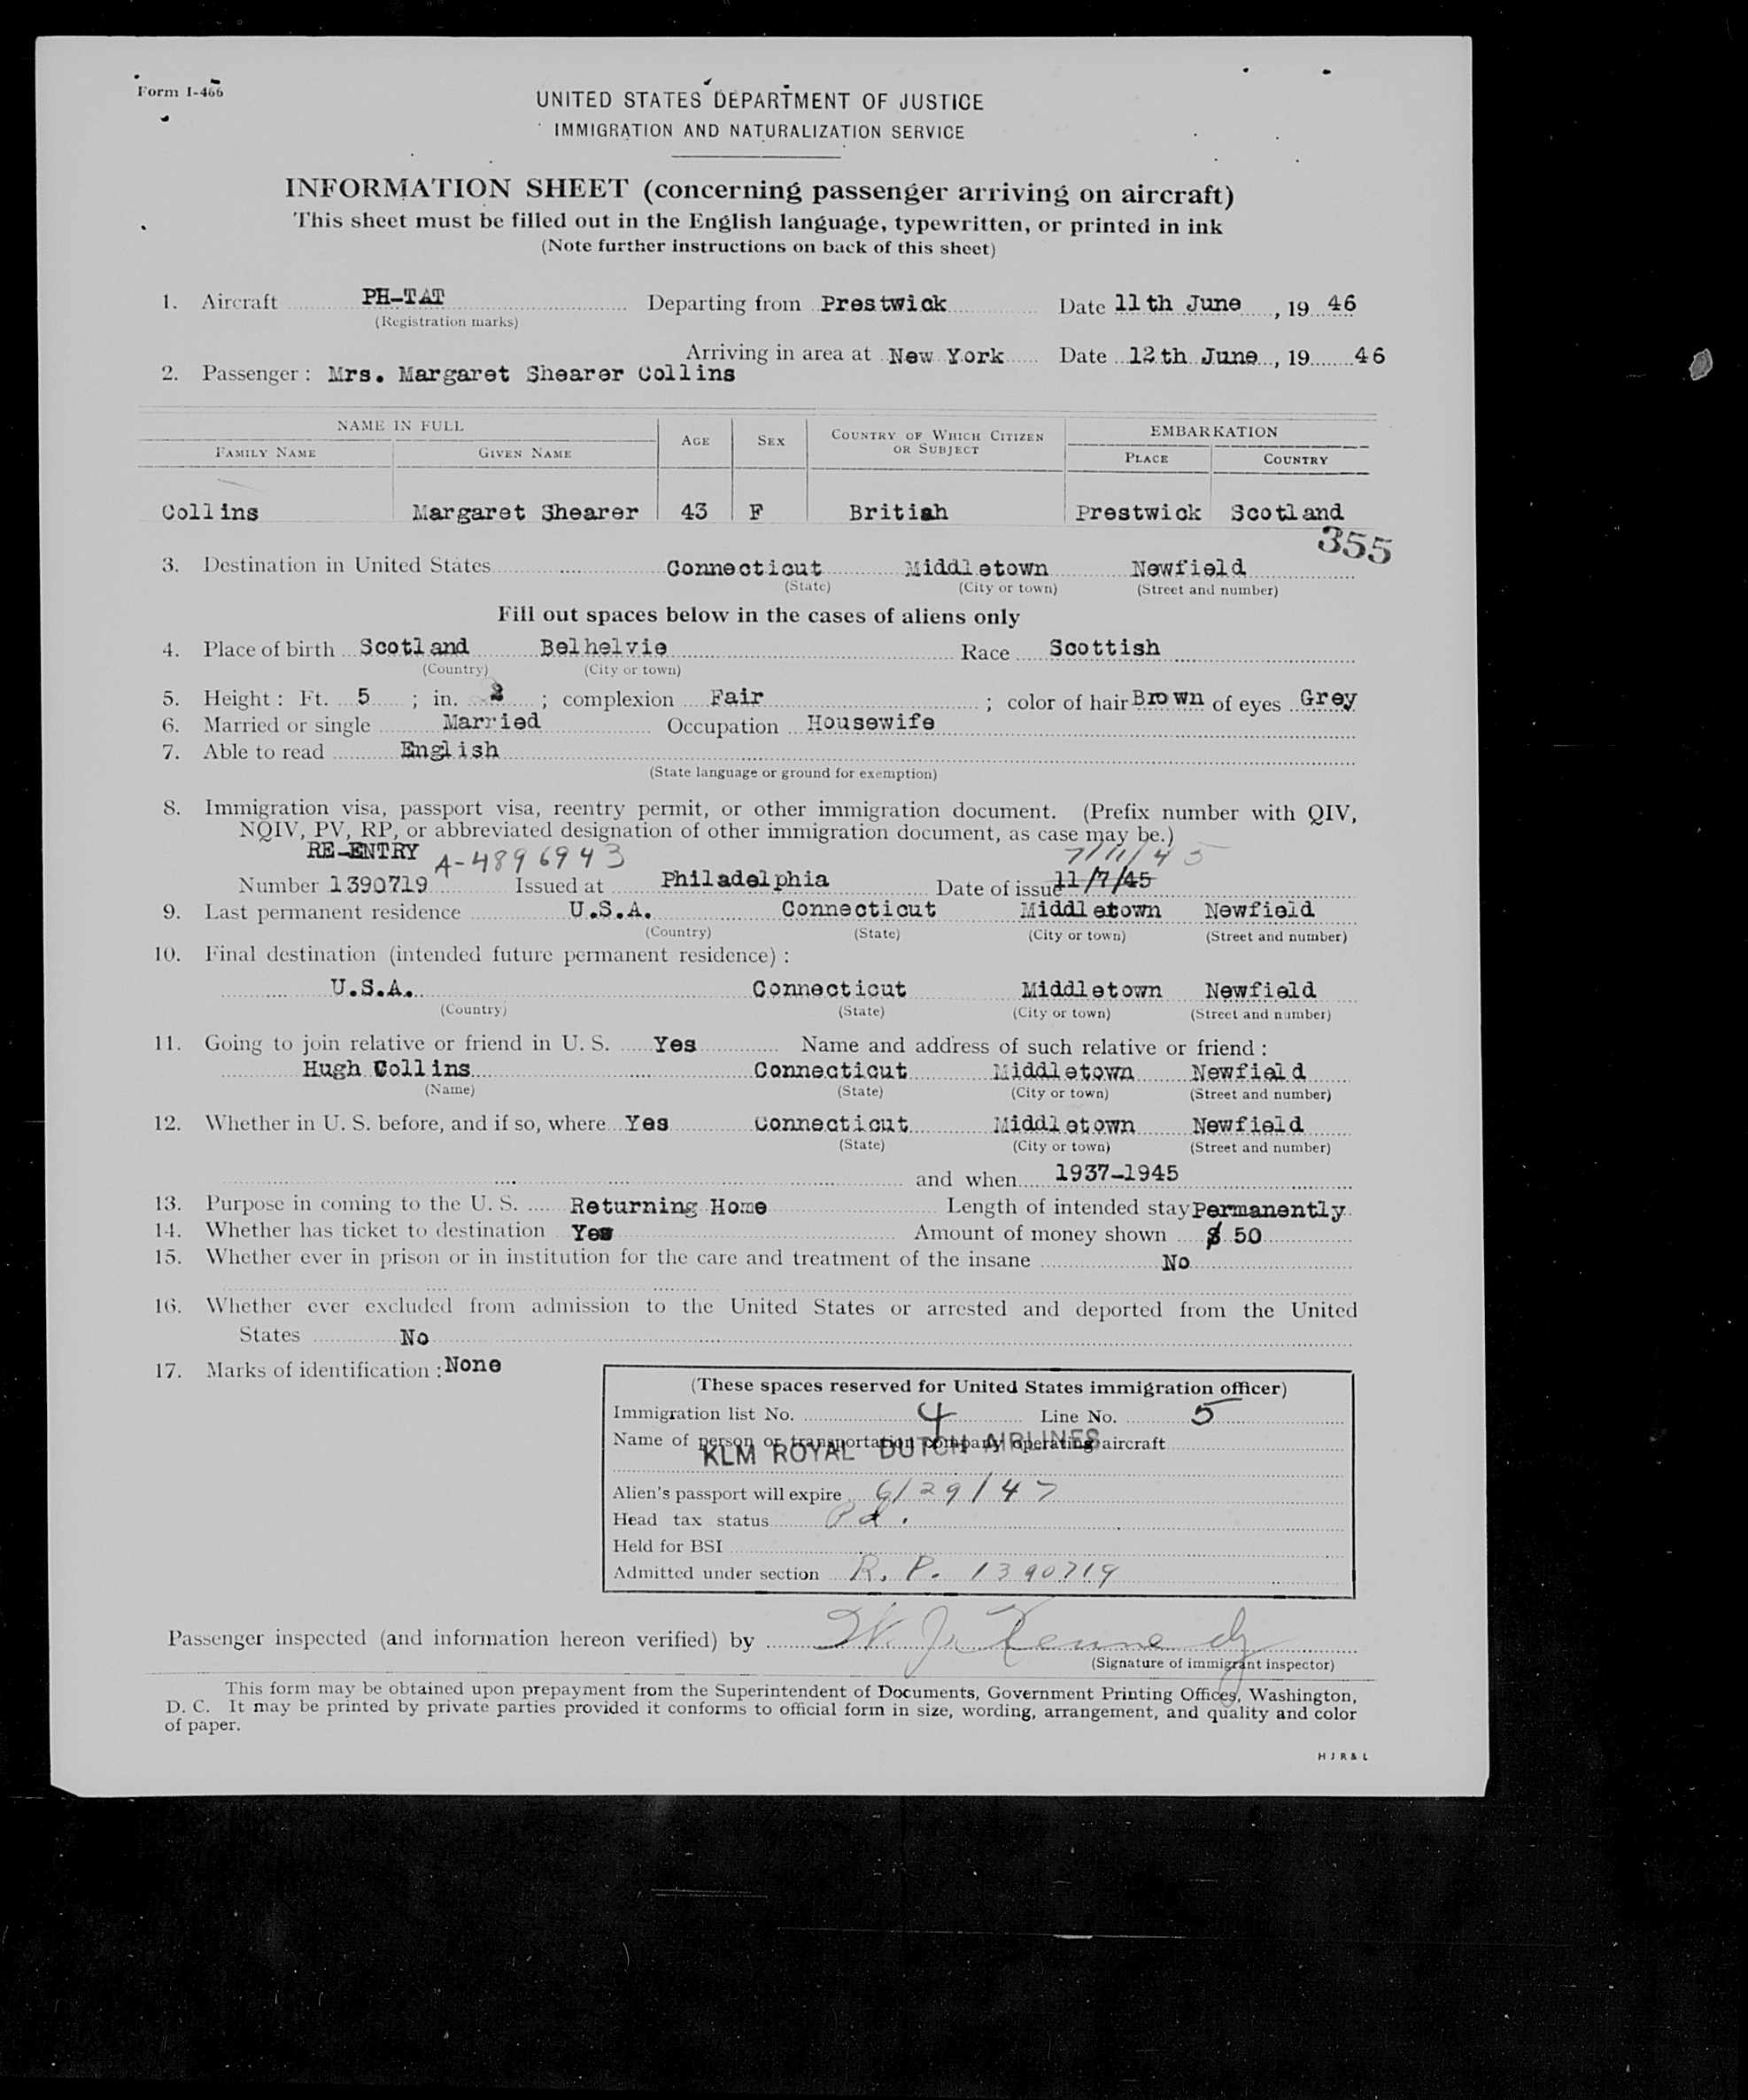 Form I-466
UNITED STATES DEPARTMENT OF JUSTICE
IMMIGRATION AND NATURALIZATION SERVICE
INFORMATION SHEET (concerning passenger arriving on aircraft)
This sheet must be filled out in the English language, typewritten, or printed in ink
(Note further instructions on back of this sheet)
1. Aircraft PH-TAT Departing from Prestwick Date 11th June, 19 46
(Registration marks)
Arriving in area at New York Date 12th June, 19 46
2. Passenger: Mrs. Margaret Shearer Collins
NAME IN FULL AGE SEX COUNTRY OF WHICH CITIZEN OR SUBJECT EMBARKATION
FAMILY NAME GIVEN NAME PLACE COUNTRY
Collins Margaret Shearer 43 F British Prestwick Scotland
355
3. Destination in United States Connecticut Middletown Newfield
(State) (City or town) (Street and number)
Fill out spaces below in the cases of aliens only
4. Place of birth Scotland Belhelvie Race Scottish
(Country) (City or town)
5. Height: Ft. 5 ; in. 2 ; complexion Fair ; color of hair Brown of eyes Grey
6. Married or single Married Occupation Housewife
7. Able to read English
(State language or ground for exemption)
8. Immigration visa, passport visa, reentry permit, or other immigration document. (Prefix number with QIV,
NQIV, PV, RP, or abbreviated designation of other immigration document, as case may be.)
RE-ENTRY A-4896943 7/11/45
Number 1390719 Issued at Philadelphia Date of issue 11/7/45
9. Last permanent residence U.S.A. Connecticut Middletown Newfield
(Country) (State) (City or town) (Street and number)
10. Final destination (intended future permanent residence):
U.S.A. Connecticut Middletown Newfield
(Country) (State) (City or town) (Street and number)
11. Going to join relative or friend in U. S. Yes Name and address of such relative or friend:
Hugh Collins Connecticut Middletown Newfield
(Name) (State) (City or town) (Street and number)
12. Whether in U. S. before, and if so, where Yes Connecticut Middletown Newfield
(State) (City or town) (Street and number)
and when 1937-1945
13. Purpose in coming to the U. S. Returning Home Length of intended stay Permanently
14. Whether has ticket to destination Yes Amount of money shown $ 50
15. Whether ever in prison or in institution for the care and treatment of the insane No
16. Whether ever excluded from admission to the United States or arrested and deported from the United
States No
17. Marks of identification: None
(These spaces reserved for United States immigration officer)
Immigration list No. 4 Line No. 5
Name of person or transportation company operating aircraft
KLM ROYAL DUTCH AIRLINES
Alien's passport will expire 6/29/47
Head tax status Pd.
Held for BSI
Admitted under section R. P. 1390719
Passenger inspected (and information hereon verified) by W. J. Kennedy
(Signature of immigrant inspector)
This form may be obtained upon prepayment from the Superintendent of Documents, Government Printing Offices, Washington,
D. C. It may be printed by private parties provided it conforms to official form in size, wording, arrangement, and quality and color
of paper.
H J R & L